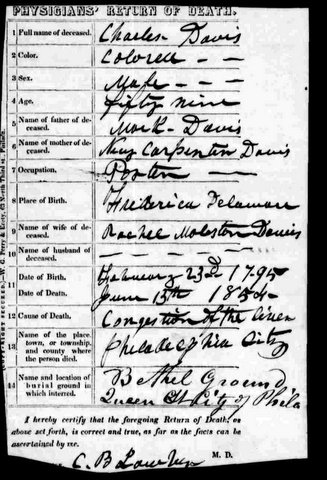 PHYSICIANS' RETURN OF DEATH.
1 Full name of deceased. Charles Davis
2 Color. Colored — —
3 Sex. Male — —
4 Age. fifty nine
5 Name of father of deceased. Mark Davis
6 Name of mother of deceased. Carpenter Davis
7 Occupation. Porter —
8 Place of Birth. Frederica Delaware
9 Name of wife of deceased. Rachel Moleston Davis
10 Name of husband of deceased. — — — —
11 Date of Birth. February 23d 1795
Date of Death. June 15th 1854
12 Cause of Death. Congestion of the Liver
13 Name of the place, town, or township, and county where the person died. Philadelphia City
14 Name and location of burial ground in which interred. Bethel Ground
Queen St City of Phila
I hereby certify that the foregoing Return of Death, as
above set forth, is correct and true, as far as the facts can be
ascertained by me.
C. B M. D.